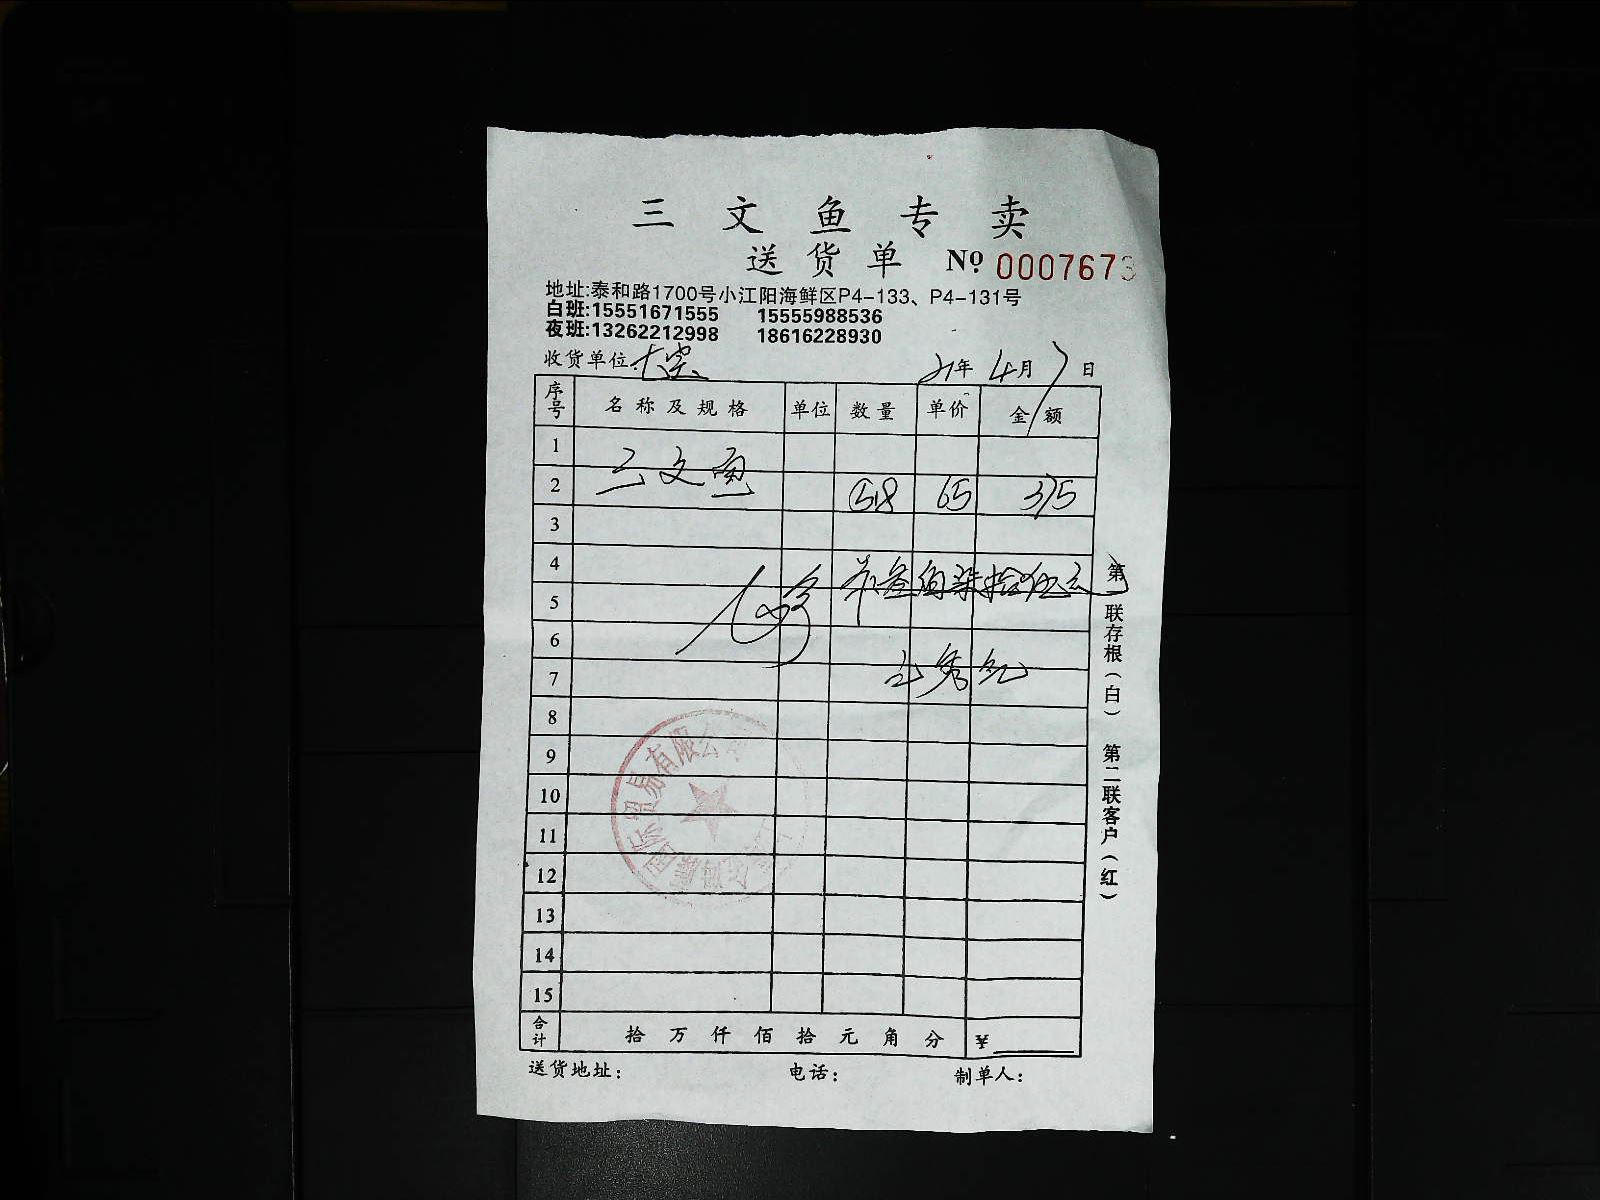 三文鱼专卖
送货单 № 0007673
地址:泰和路1700号小江阳海鲜区P4-133、P4-131号
白班:15551671555 15555988536
夜班:13262212998 18616228930
收货单位: 21年4月7日
序号 名称及规格 单位 数量 单价 金额
1
2 三文鱼 5.8 65 375
3
4
叁佰柒拾伍元
5
6
7
8
9
10
11
12
13
14
15
合计 拾万仟佰拾元角分 ¥
送货地址: 电话: 制单人:
第一联存根(白) 第二联客户(红)
国际贸易有限公司